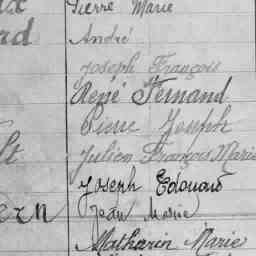 Pierre Marie
rd André
Joseph François
René Fernand
Pierre Joseph
lt Julien François Marie
Joseph Edouard
ern Jean Marie
Mathurin Marie